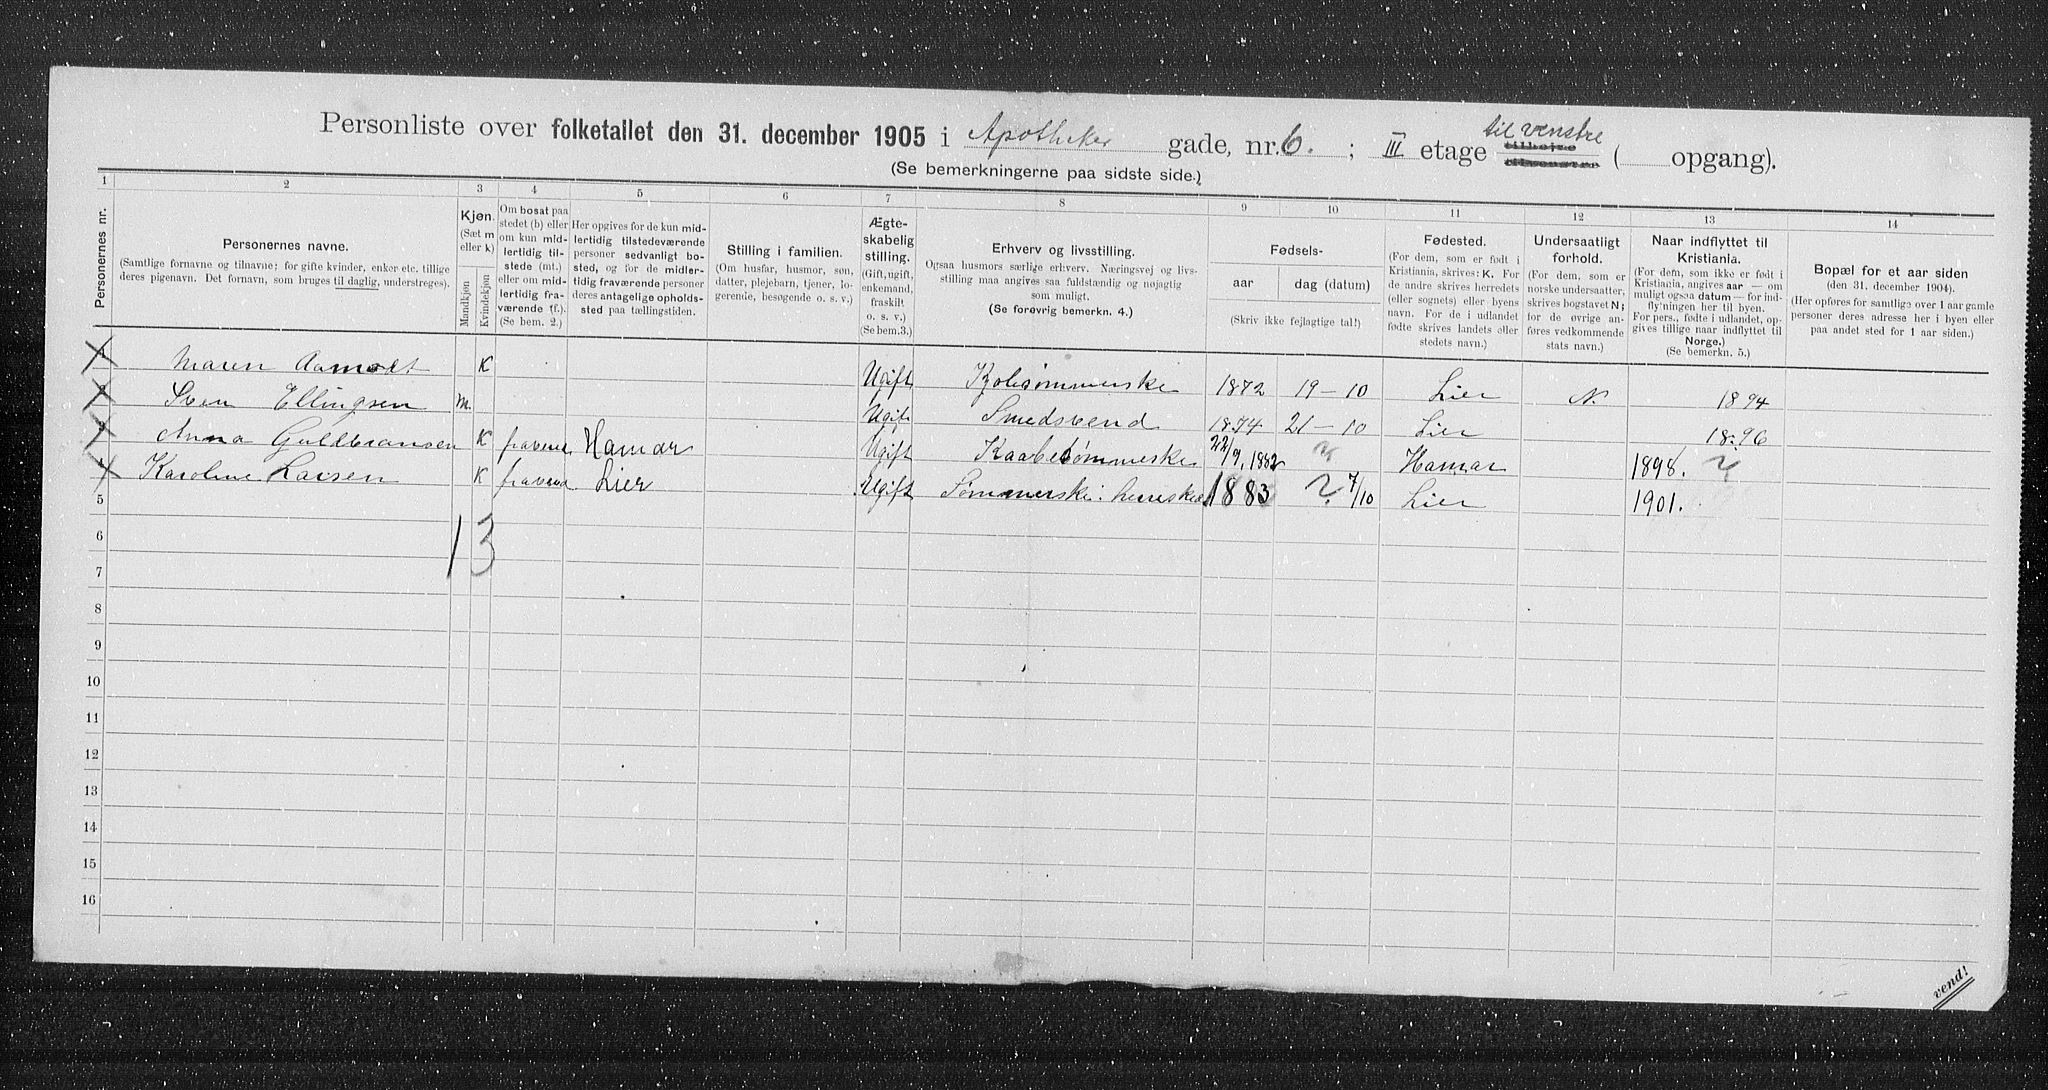 Personliste over folketallet den 31. december 1905 i Apotheker gade, nr. 6. ; III etage til venstre tilhøjre tilvenstre ( opgang).
(Se bemerkningerne paa sidste side.)
1 2 3 4 5 6 7 8 9 10 11 12 13 14
Personernes nr.
Personernes navne.
(Samtlige fornavne og tilnavne; for gifte kvinder, enker etc. tillige
deres pigenavn. Det fornavn, som bruges til daglig, understreges).
Kjøn.
(Sæt m
eller k)
Mandkjøn
Kvindekjøn
Om bosat paa
stedet (b) eller
om kun mid-
lertidig til-
stede (mt.)
eller om mid-
lertidig fra-
værende (f.).
(Se bem. 2.)
Her opgives for de kun mid-
lertidig tilstedeværende
personer sedvanligt bo-
sted, og for de midler-
tidig fraværende personer
deres antagelige opholds-
sted paa tællingstiden.
Stilling i familien.
(Om husfar, husmor, søn,
datter, plejebarn, tjener, lo-
gerende, besøgende o. s. v.)
Ægte-
skabelig
stilling.
(Gift, ugift,
enkemand,
fraskilt
o. s. v.)
(Se bem.3.)
Erhverv og livsstilling.
Ogsaa husmors særlige erhverv. Næringsvej og livs-
stilling maa angives saa fuldstændig og nøjagtig
som muligt.
(Se forøvrig bemerkn. 4.)
Fødsels-
aar
dag (datum)
(Skriv ikke fejlagtige tal!)
Fødested.
(For dem, som er født i
Kristiania, skrives: K. For
de andre skrives herredets
(eller sognets) eller byens
navn. For de i udlandet
fødte skrives landets eller
stedets navn.)
Undersaatligt
forhold.
(For dem, som er
norske undersaatter,
skrives bogstavet N;
for de øvrige an-
føres vedkommende
stats navn.)
Naar indflyttet til
Kristiania.
(For dem, som ikke er født i
Kristiania, angives aar — om
muligt ogsaa datum — for ind-
flytningen her til byen.
For pers., fødte i udlandet, op-
gives tillige naar indflyttet til
Norge.)
(Se bemerkn. 5.)
Bopæl for et aar siden
(den 31. december 1904).
(Her opføres for samtlige over 1 aar gamle
personer deres adresse her i byen eller
paa andet sted for 1 aar siden.)
1 Maren Aamodt K Ugift Kjolesømmerske 1872 19–10 Lier N. 1894
2 Sven Ellingsen m. Ugift Smedsvend 1874 21–10 Lier 1896
3 Anna Guldbransen K Hamar Ugift Kaabesømmeske 22/9, 1882 ? Hamar 1898. ?
4 Karoline Larsen K Lier Ugift 1883 ? 7/10 Lier 1901.
5
6
1 3
7
8
9
10
11
12
13
14
15
16
vend!